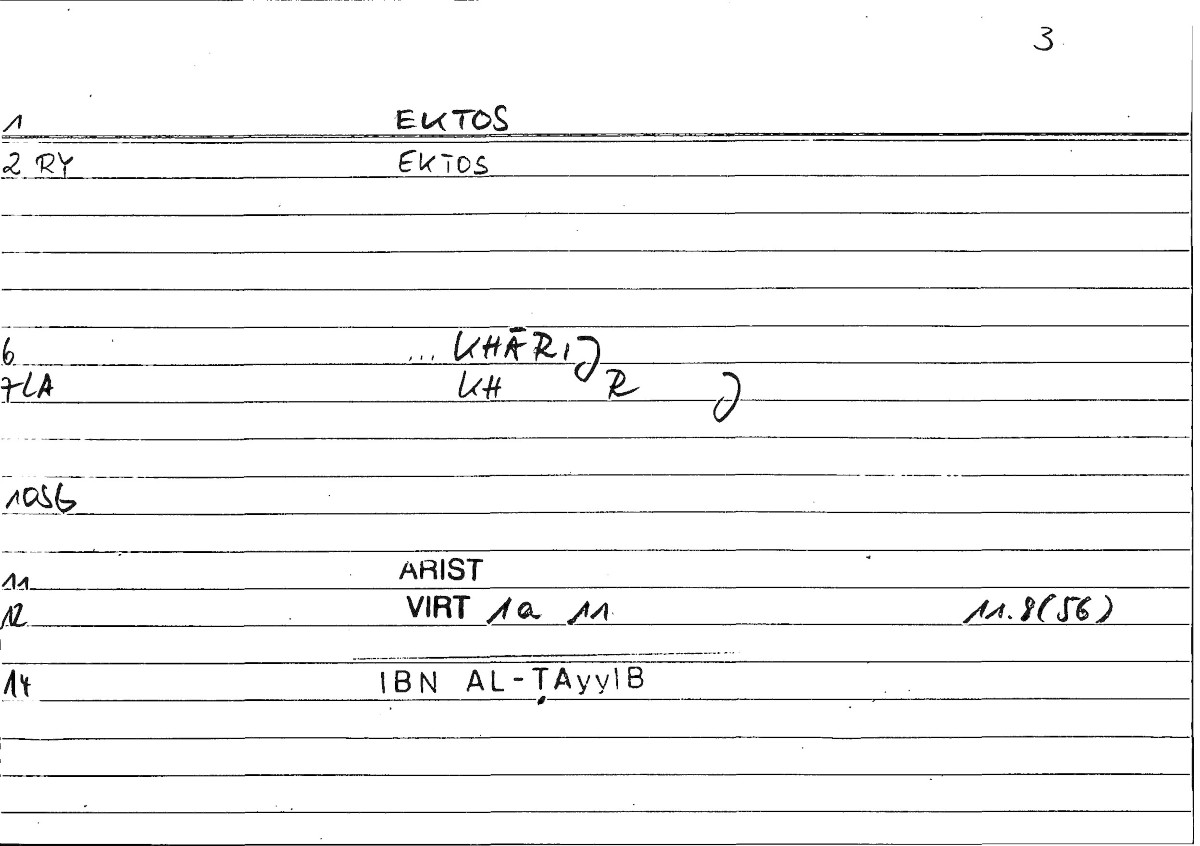 3
1 EKTOS
2 RY EKTOS
6 ... KHĀRIJ
7LA KH R J
10SG
11 ARIST
12 VIRT 1a 11 11.8(56)
14 IBN AL-ṬAyyIB